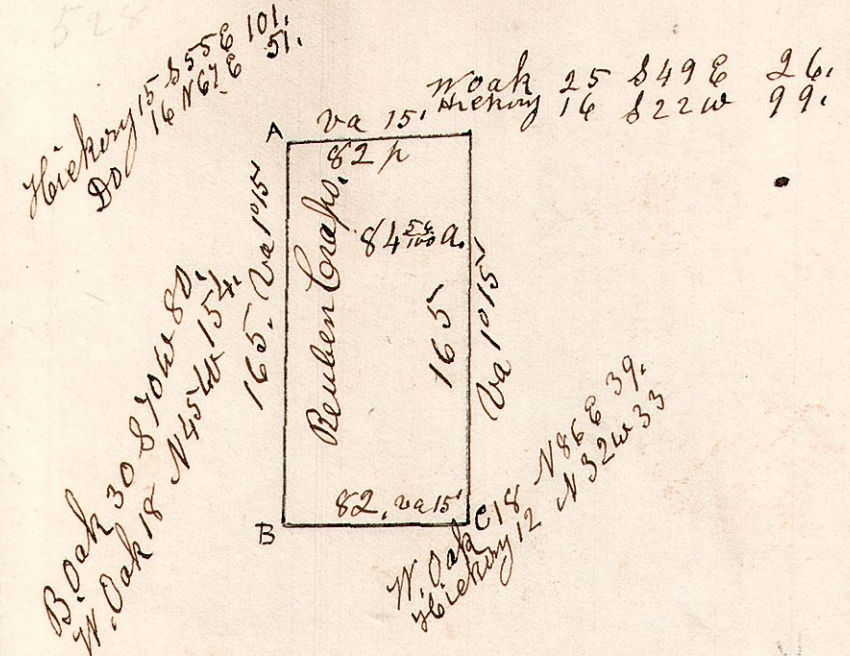 528
Hickory 15 S55E 101.
Do 16 N67E 51.
W oak 25 S49E 26.
Hickory 16 S22W 99.
A
va 15'
82 p
84 56/100 a.
Reuben Crapo.
165. Va 1°15'
165
Va 1°15'
B. Oak 30 S70W 80.
W. Oak 18 N45W 154.
82. va 15'
B
W. Oak 18 N86E 39.
Hickory 12 N32W 33